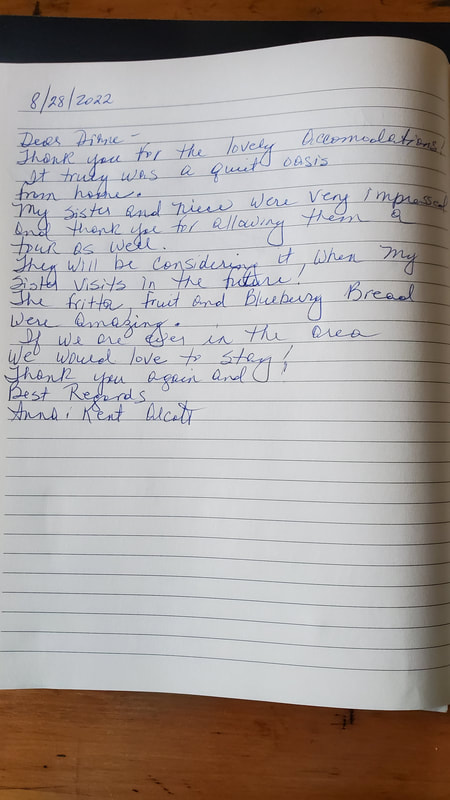 8/28/2022
Dear Diane -
Thank you for the lovely accomodations!
It truly was a quiet oasis
from home.
My sister and niece were very impressed
and thank you for allowing them a
tour as well.
They will be considering it, when my
sister visits in the future!
The fritta, fruit and Blueburry Bread
were amazing.
If we are ever in the area
we would love to stay!
Thank you again and
Best Regards
Anna & Kent Alcott